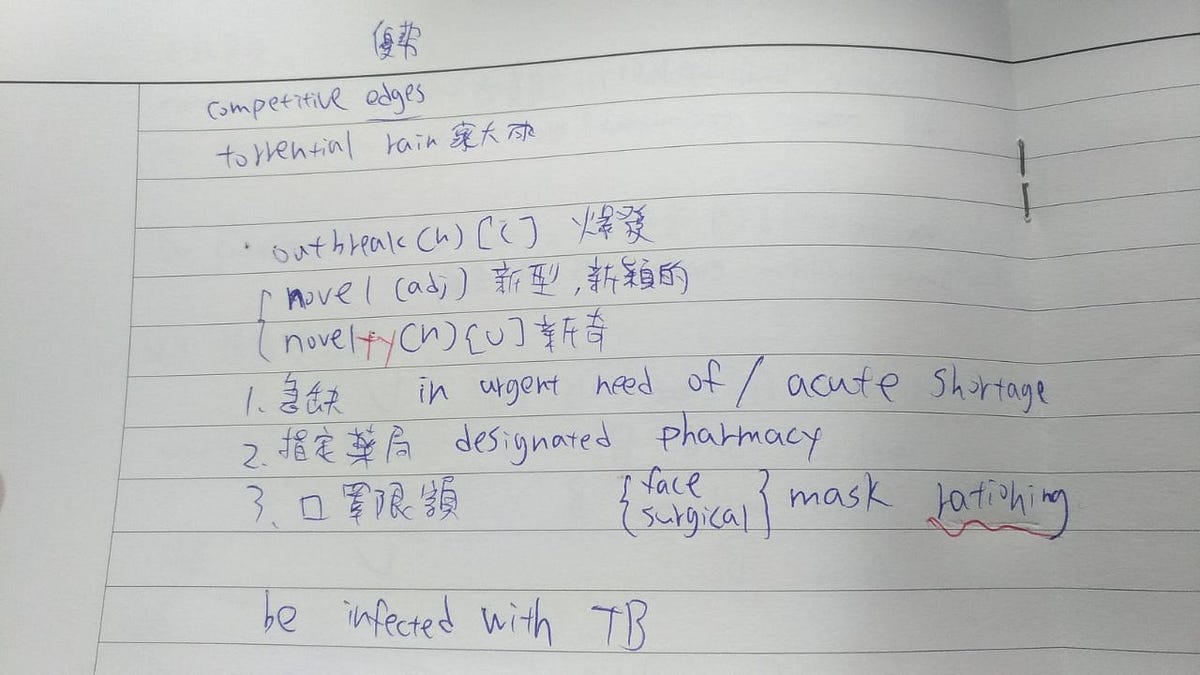 優勢
competitive edges
torrential rain 豪大雨
· outbreak (n) [c] 爆發
{ novel (adj) 新型,新穎的
novelty (n) [U] 新奇
1. 急缺 in urgent need of / acute shortage
2. 指定藥局 designated pharmacy
3. 口罩限額 { face
surgical } mask rationing
be infected with TB